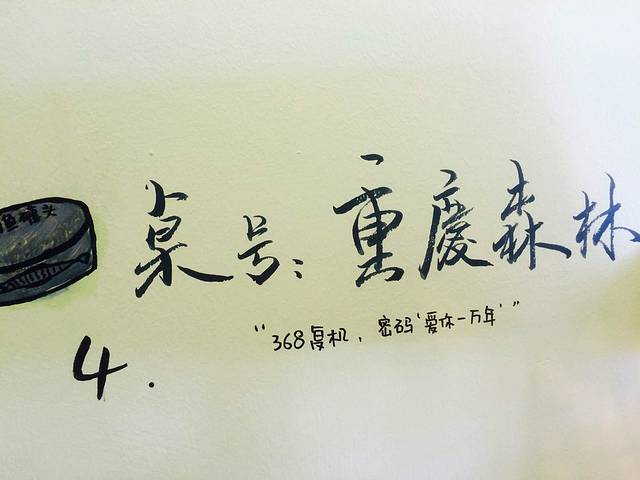 鱼罐头
桌号：重慶森林
"368复机，密码'爱你一万年'"
4.